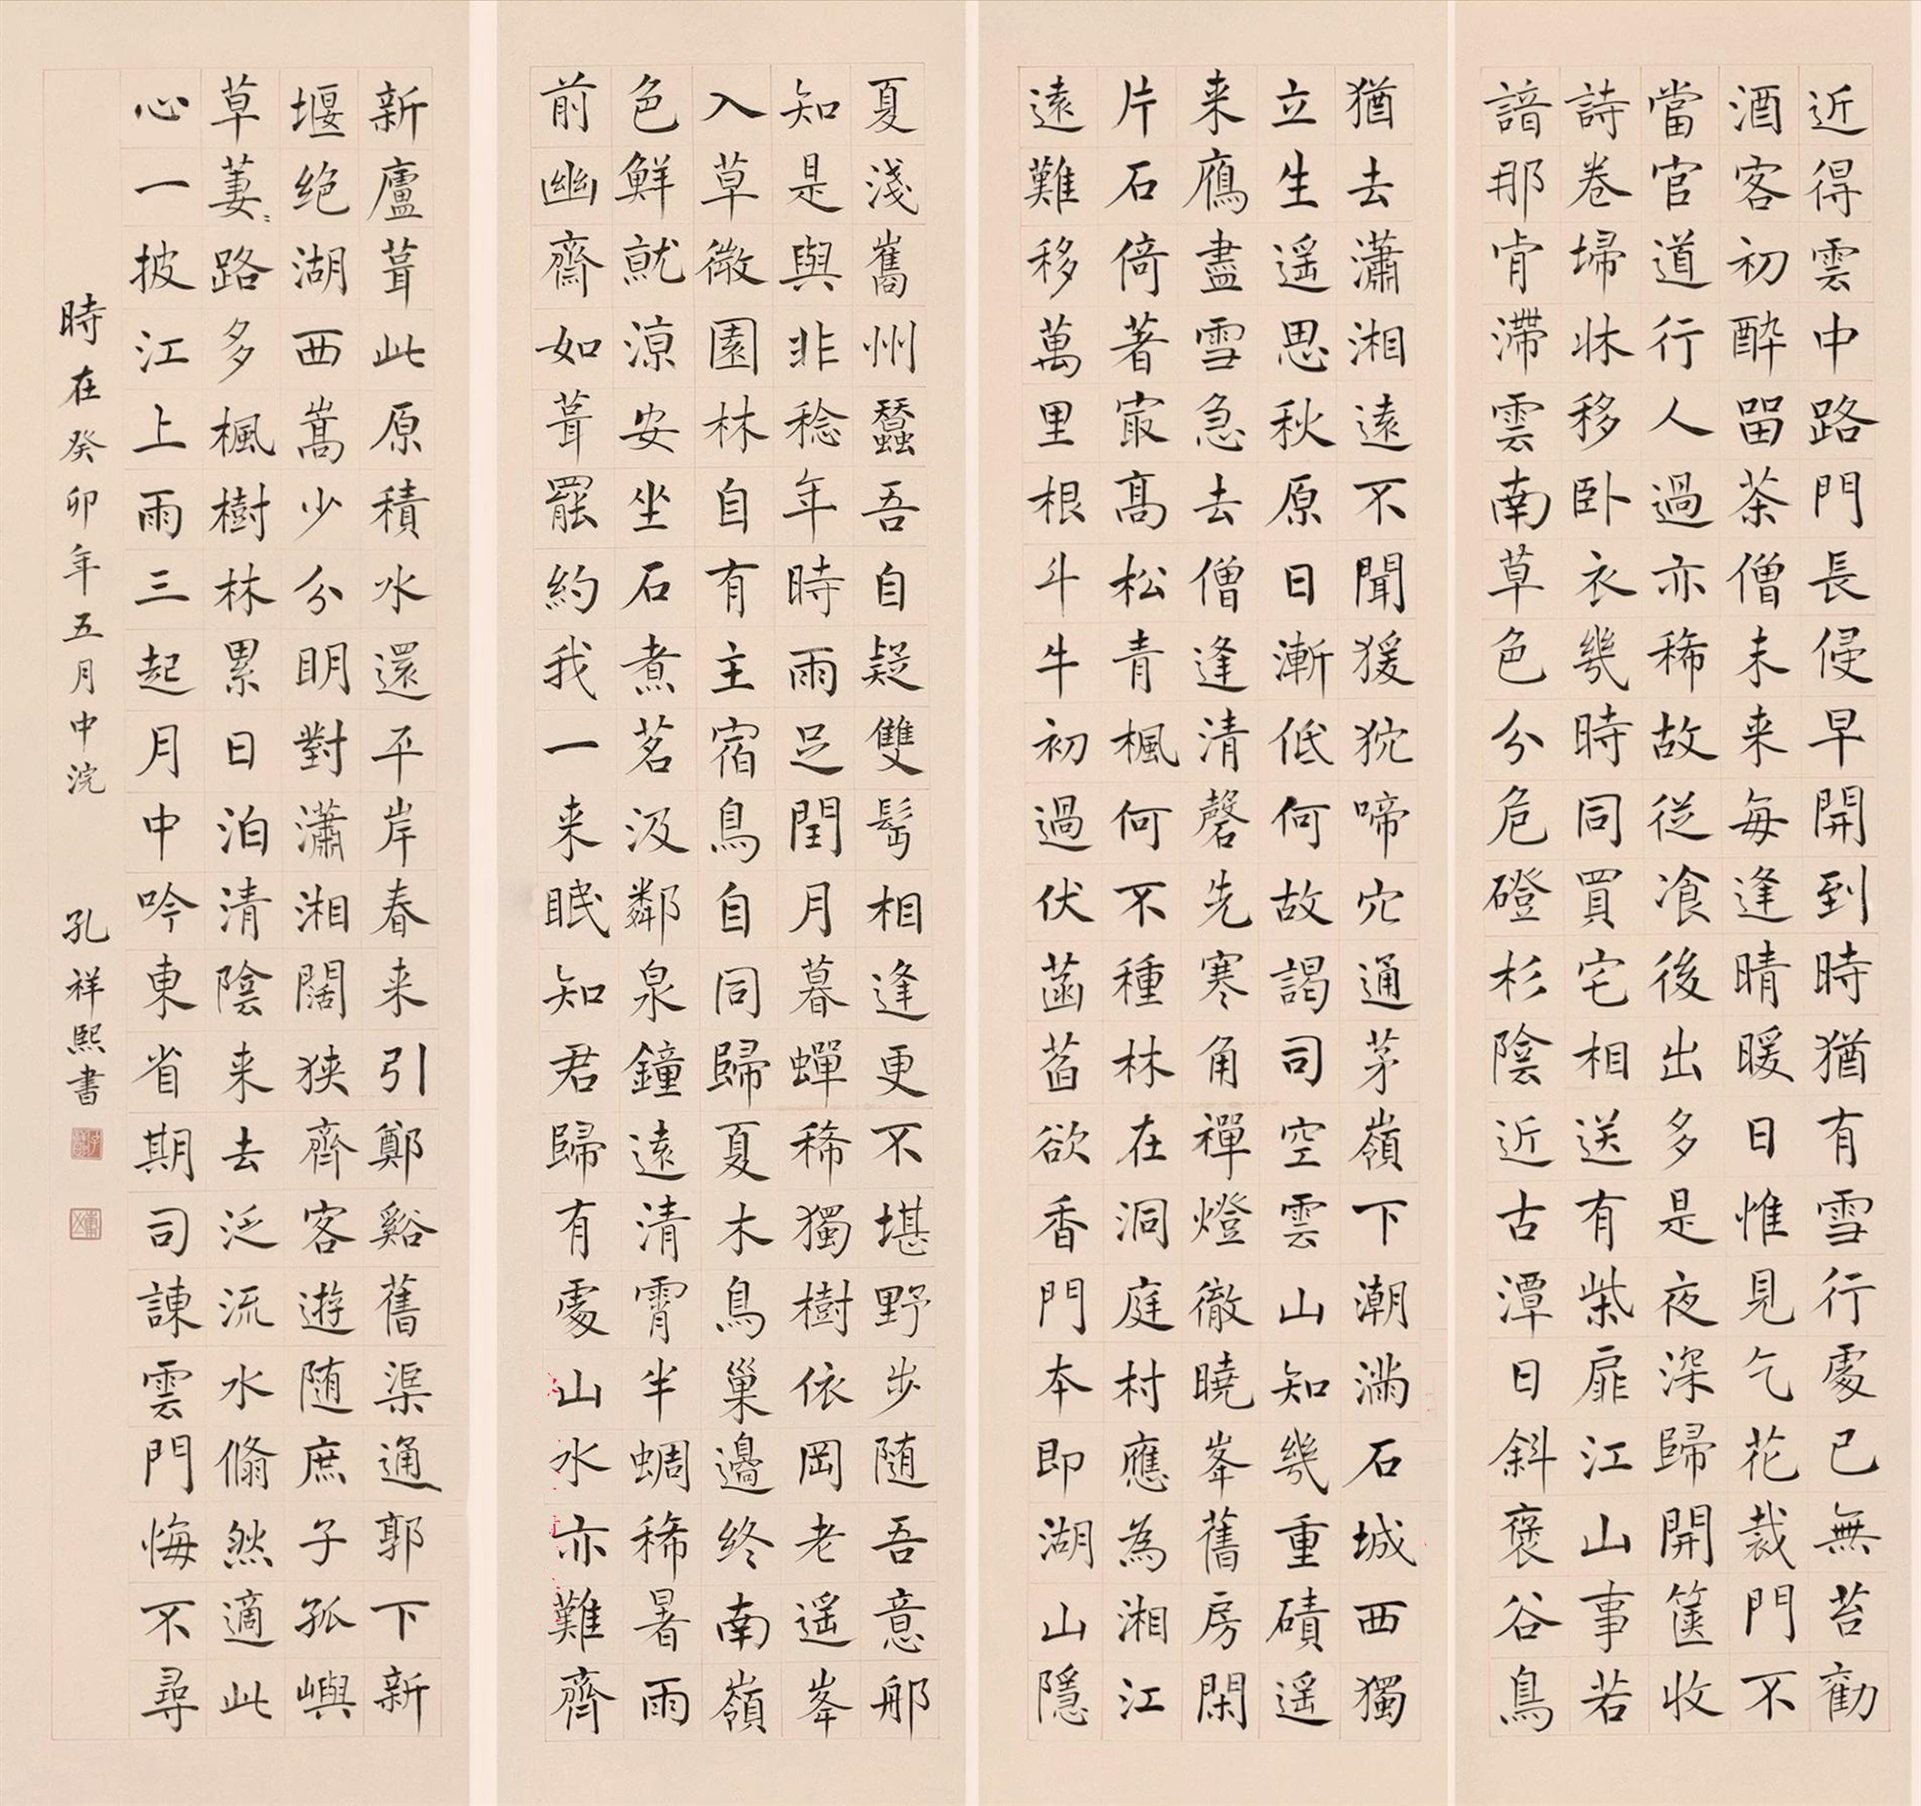 近得雲中路門長侵早開到時猶有雪行處已無苔勸
酒客初醉留茶僧未来每逢晴暖日惟見乞花栽門不
當官道行人過亦稀故従飡後出多是夜深歸開篋收
詩卷埽牀移卧衣幾時同買宅相送有柴扉江山事若
諳那肯滯雲南草色分危磴杉陰近古潭日斜襃谷鳥
猶去瀟湘遠不聞猨狖啼穴通茅嶺下潮滿石城西獨
立生遥思秋原日漸低何故謁司空雲山知幾重磧遥
来鴈盡雪急去僧逢清磬先寒角禪燈徹曉峯舊房閑
片石倚著冣髙松青楓何不種林在洞庭村應為湘江
遠難移萬里根斗牛初過伏菡萏欲香門本即湖山隱
夏淺巂州蠶吾自疑雙髩相逢更不堪野步随吾意那
知是與非稔年時雨足閏月暮蟬稀獨樹依岡老遥峯
入草微園林自有主宿鳥自同歸夏木鳥巢邊终南嶺
色鮮就涼安坐石煮茗汲鄰泉鐘遠清霄半蜩稀暑雨
前幽齋如葺罷約我一来眠知君歸有處山水亦難齊
新廬葺此原積水還平岸春来引鄭谿舊渠通郭下新
堰绝湖西嵩少分明對瀟湘闊狹齊客遊随庶子孤嶼
草萋〻路多楓樹林累日泊清陰来去泛流水翛然適此
心一披江上雨三起月中吟東省期司諫雲門悔不尋
時在癸卯年五月中浣 孔祥熙書